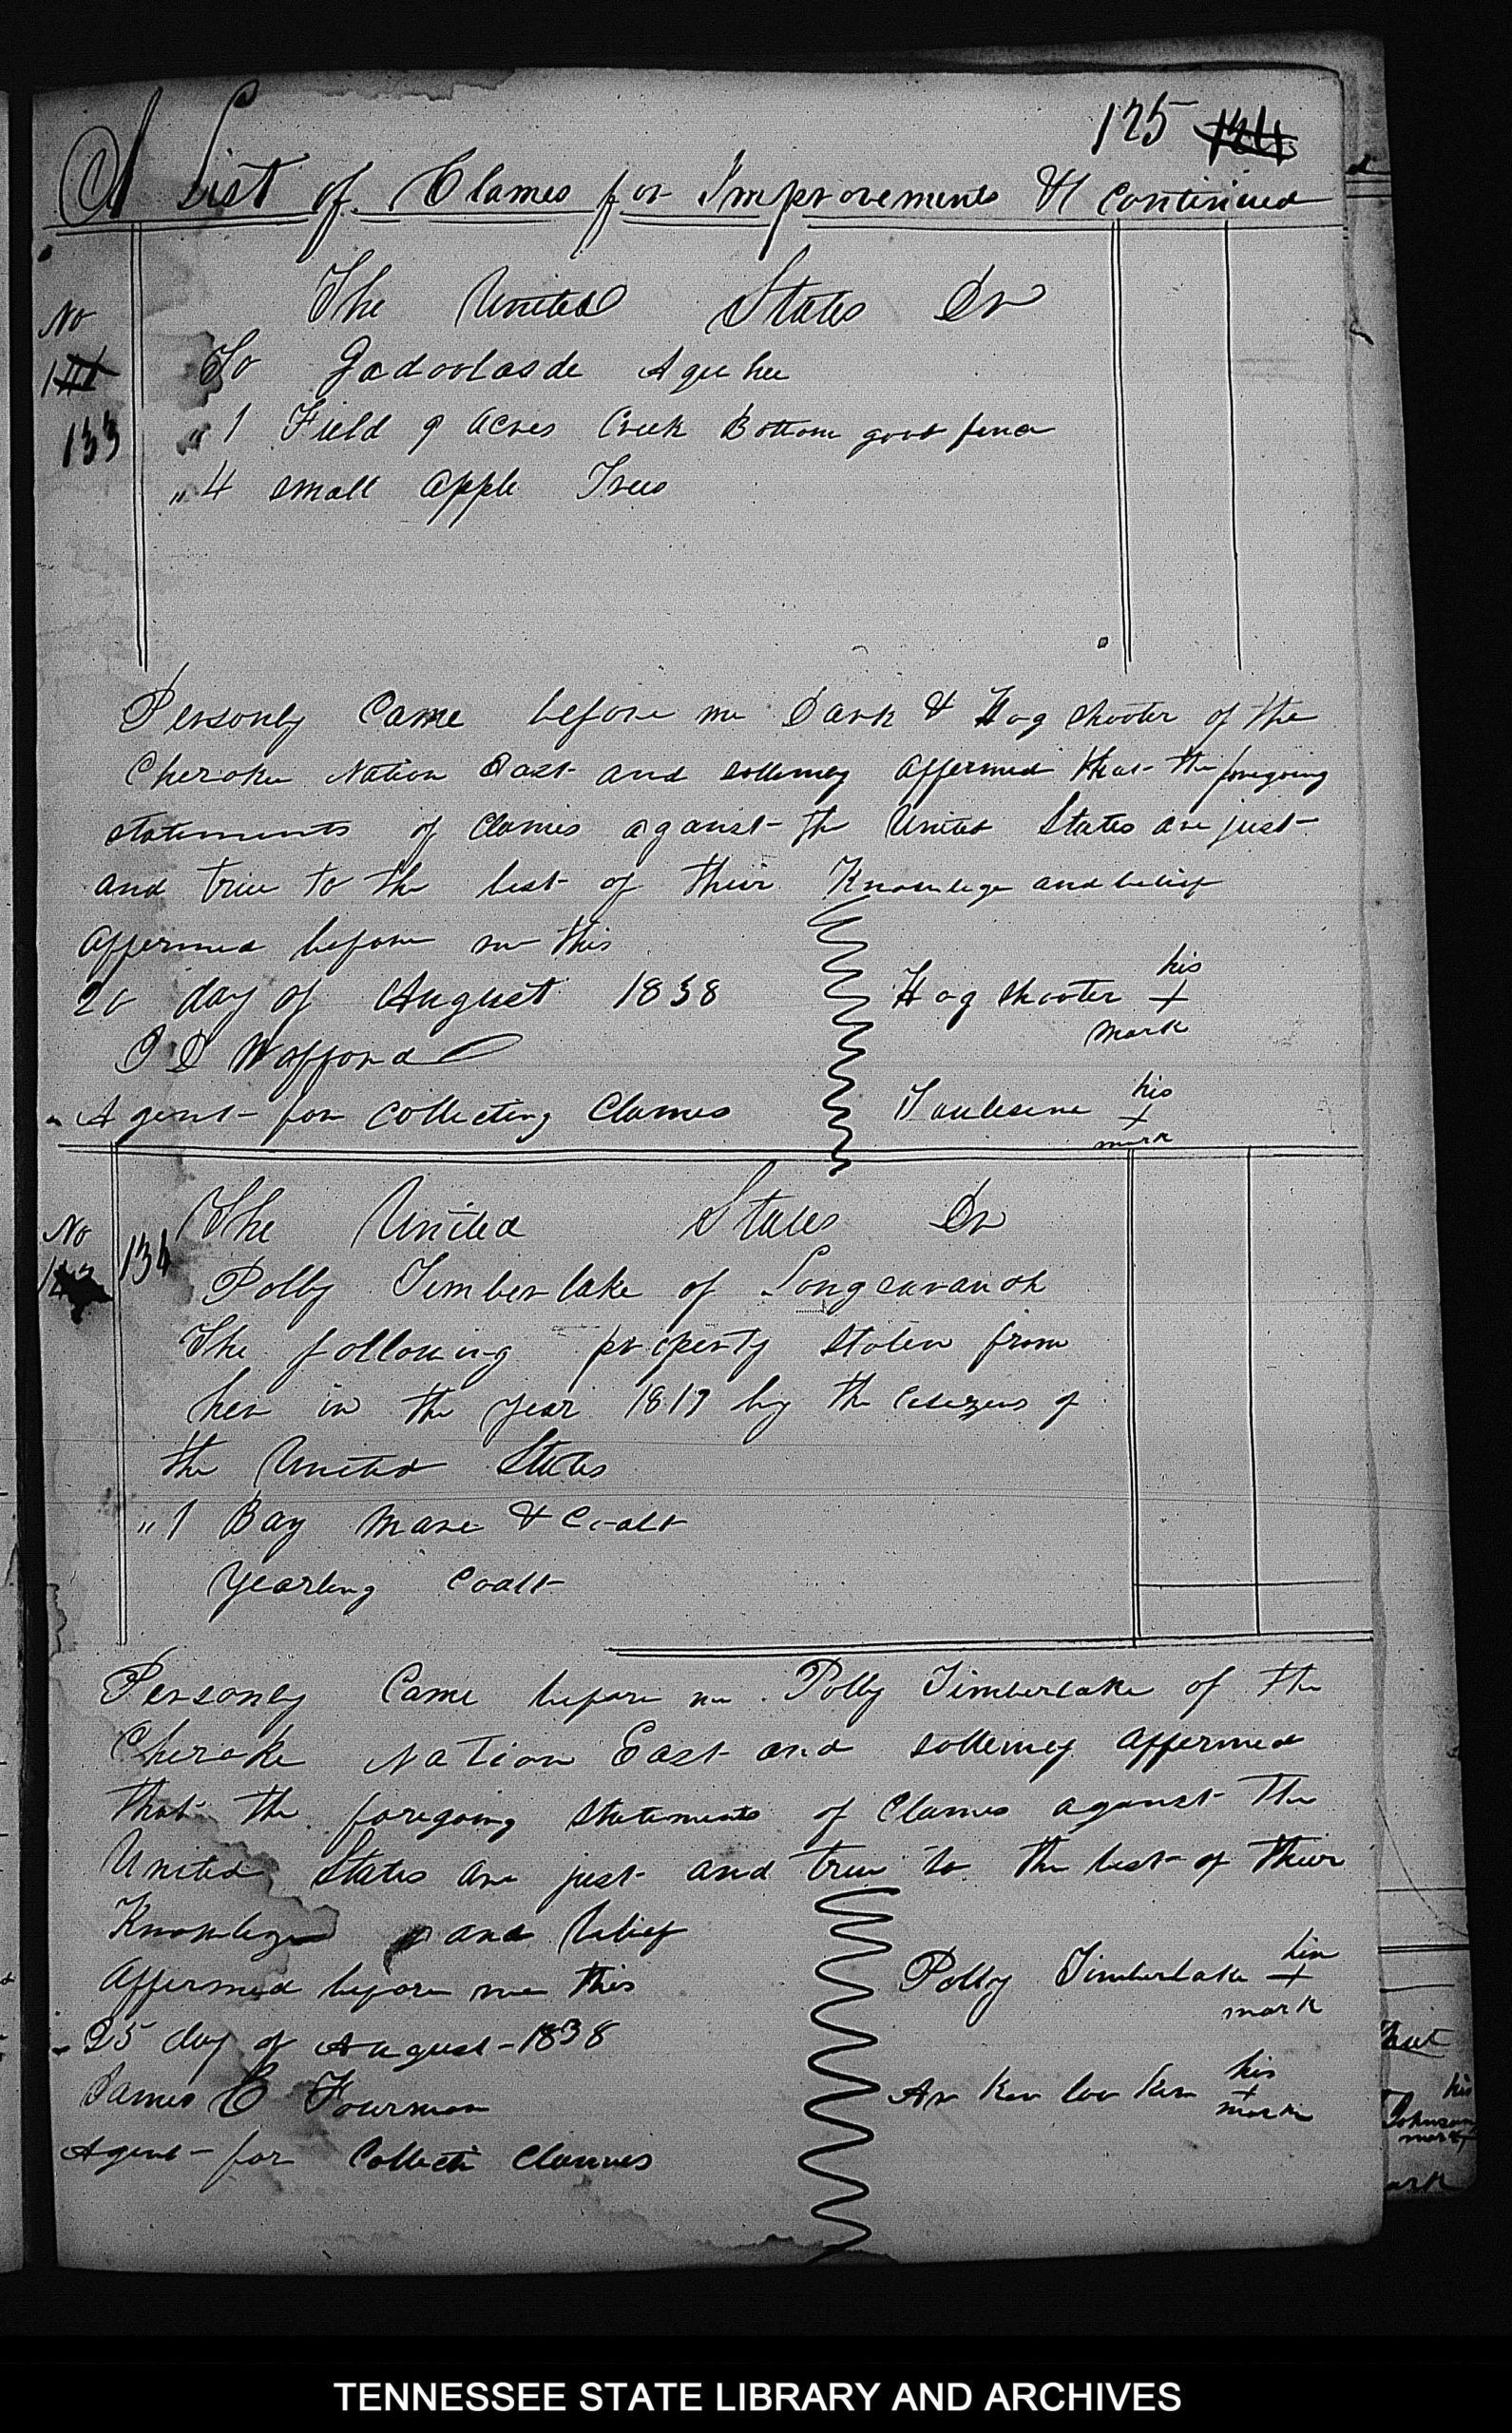 125
A List of Clames for Improvements &c continued
The United States Dr
No
To Gadoolasde Aguhee
133
" 1 Field 9 acres Creek Bottom good fence
" 4 small apple Trees
Personly Came before me Dark & Hog shooter of the
Cherokee Nation East and sollemey affermed that the foregoing
statements of Clames aganst the United States are just
and true to the best of their Knowlege and belief
affermed before me this
20 day of August 1838
J D Wafford
Agent for collecting Clames
his
Hog shooter +
mark
his
Taulesene +
mark
The United States Dr
No
134
Polly Timberlake of Longsavanoh
The following property stolen from
her in the year 1819 by the Citizens of
the United States
" 1 Bay mare & Coalt
Yearling Coalt
Personly Came before me Polly Timberlake of the
Cherokee Nation East and sollemey affermed
that the foregoing statements of Clames aganst the
United States are just and true to the best of their
Knowlege and belief
affermed before me this
25 day of August 1838
James C
Agent for Collecti Clames
her
Polly Timberlake +
mark
his
Ar Ken loo Ken +
mark
his
Johnson
mark
ark
TENNESSEE STATE LIBRARY AND ARCHIVES